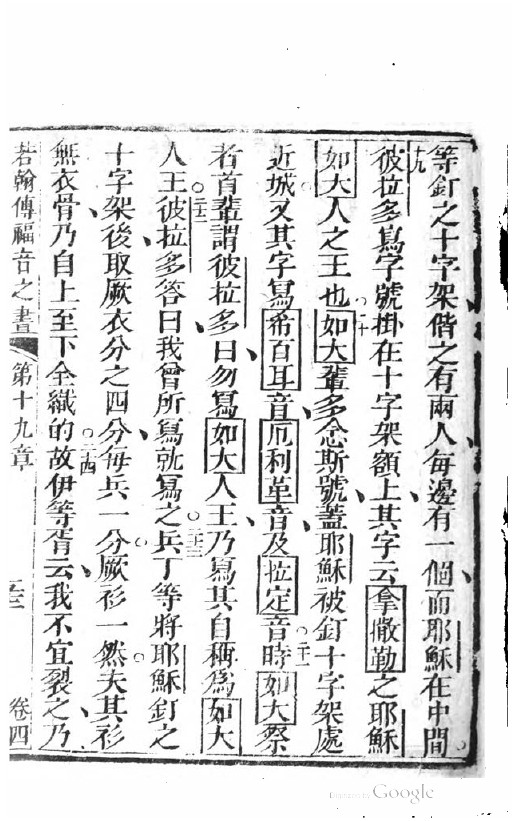 等釘之十字架偕之有兩人每邊有一個而耶穌在中間
十九
彼拉多寫字號掛在十字架額上其字云拿撒勒之耶穌
如大人之王也二十如大輩多念斯號蓋耶穌被釘十字架處
近城又其字寫希百耳音厄利革音及拉定音時二一如大祭
者首輩謂彼拉多曰勿寫如大人王乃寫其自稱爲如大
人王二二彼拉多答曰我曾所寫就寫之二三兵丁等將耶穌釘之
十字架後取厥衣分之四分每兵一分厥衫一然夫其衫
無衣骨乃自上至下全織的故二四伊等胥云我不宜裂之乃
若翰傳福音之書 第十九章 卷四
Digitized by Google